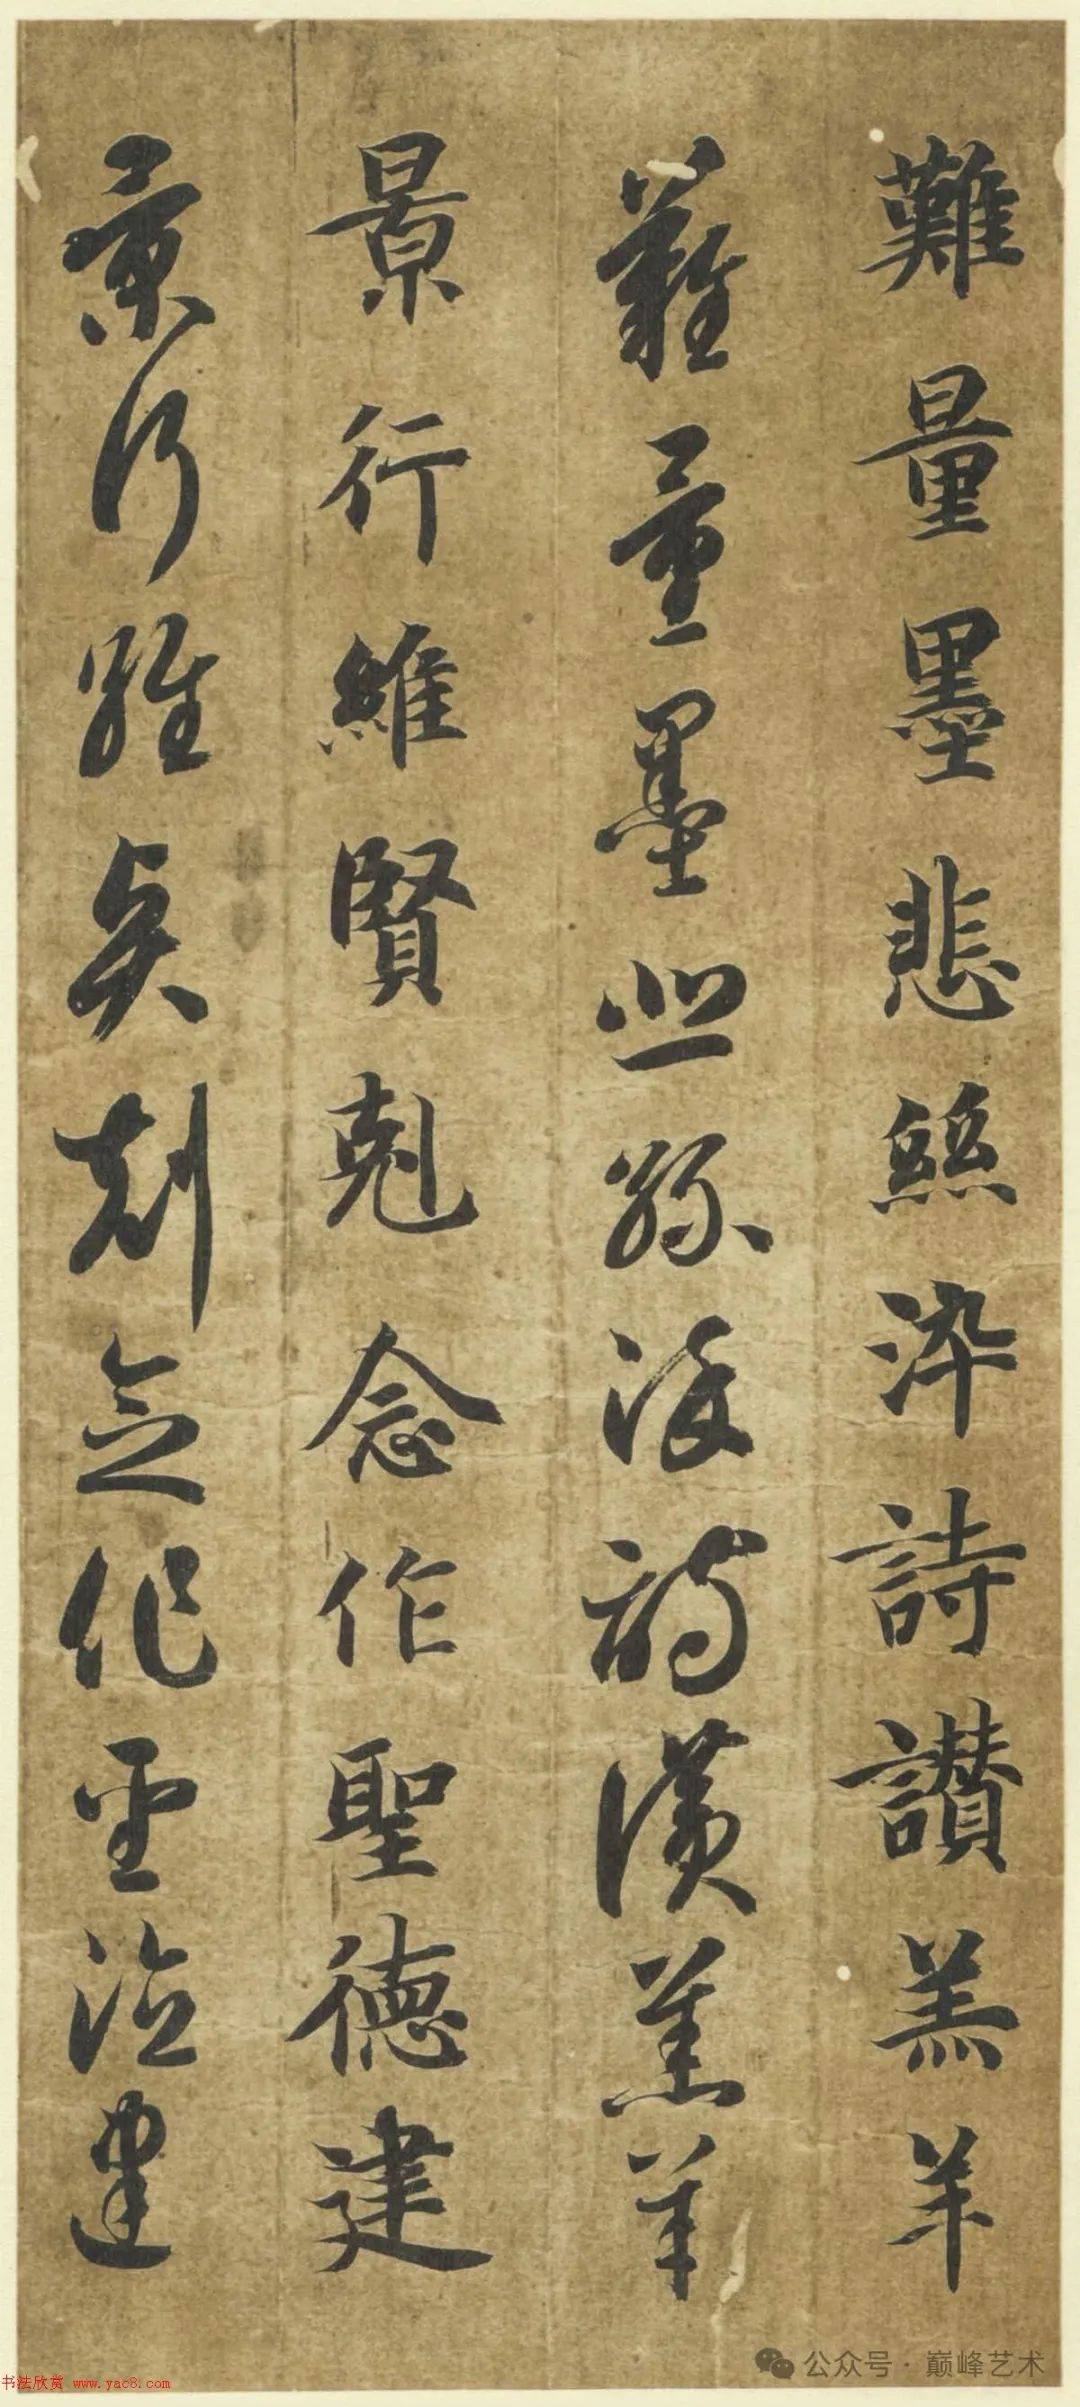 難量墨悲絲染詩讃羔羊
難量墨悲絲染詩讃羔羊
景行維賢剋念作聖德建
景行維賢剋念作聖德建
公众号·巅峰艺术
书法欣赏 www.yac8.com